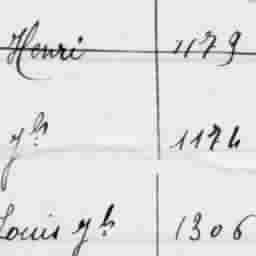 Henri 1179
jh 1174
Louis jh 1306